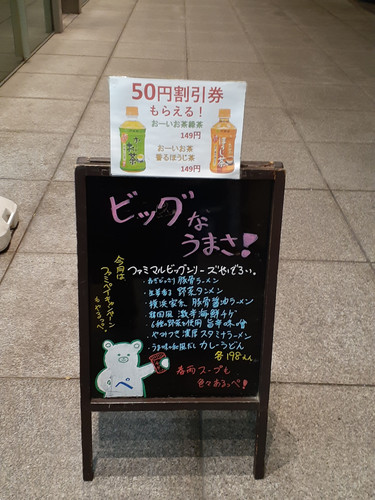 50円割引券
もらえる!
お〜いお茶緑茶
149円
お〜いお茶
香るほうじ茶
149円
お〜いお茶
ほうじ茶
ビッグな
うまさ!
今月は
ファミマルビッグシリーズやでぇい。
豚骨ラーメン
・生姜香る 野菜タンメン
・横浜家系 豚骨醤油ラーメン
・韓国風 激辛海鮮チゲ
・6種の野菜を使用 旨辛味噌
・やみつき 濃厚 スタミナラーメン
・うま味の和風だし カレーうどん
各198
春雨スープも
色々あるっぺ!